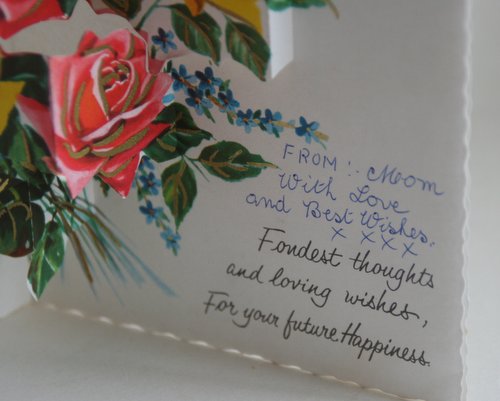 FROM :- Mom
With Love
and Best Wishes.
x x x x
Fondest thoughts
and loving wishes,
For your future Happiness.